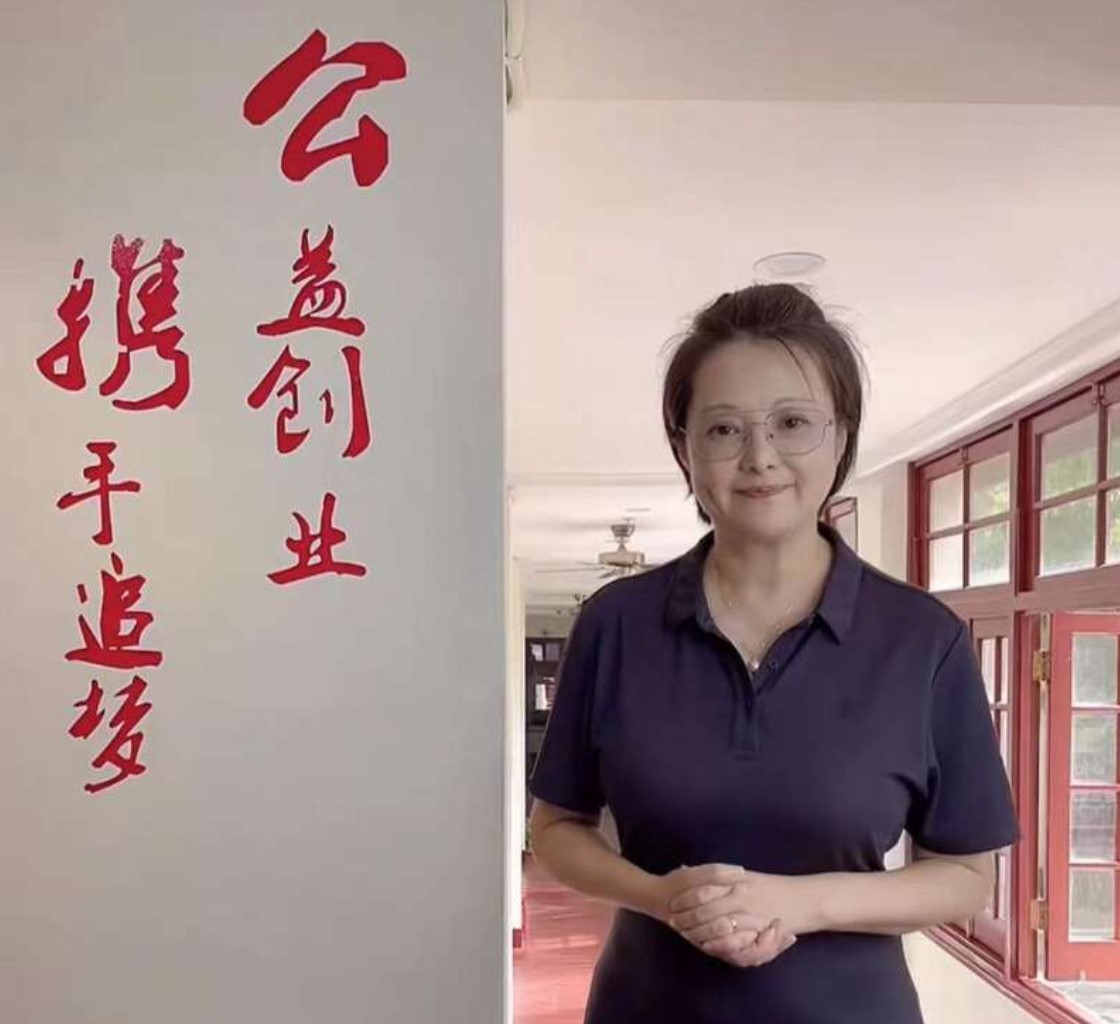 公益创业
携手追梦